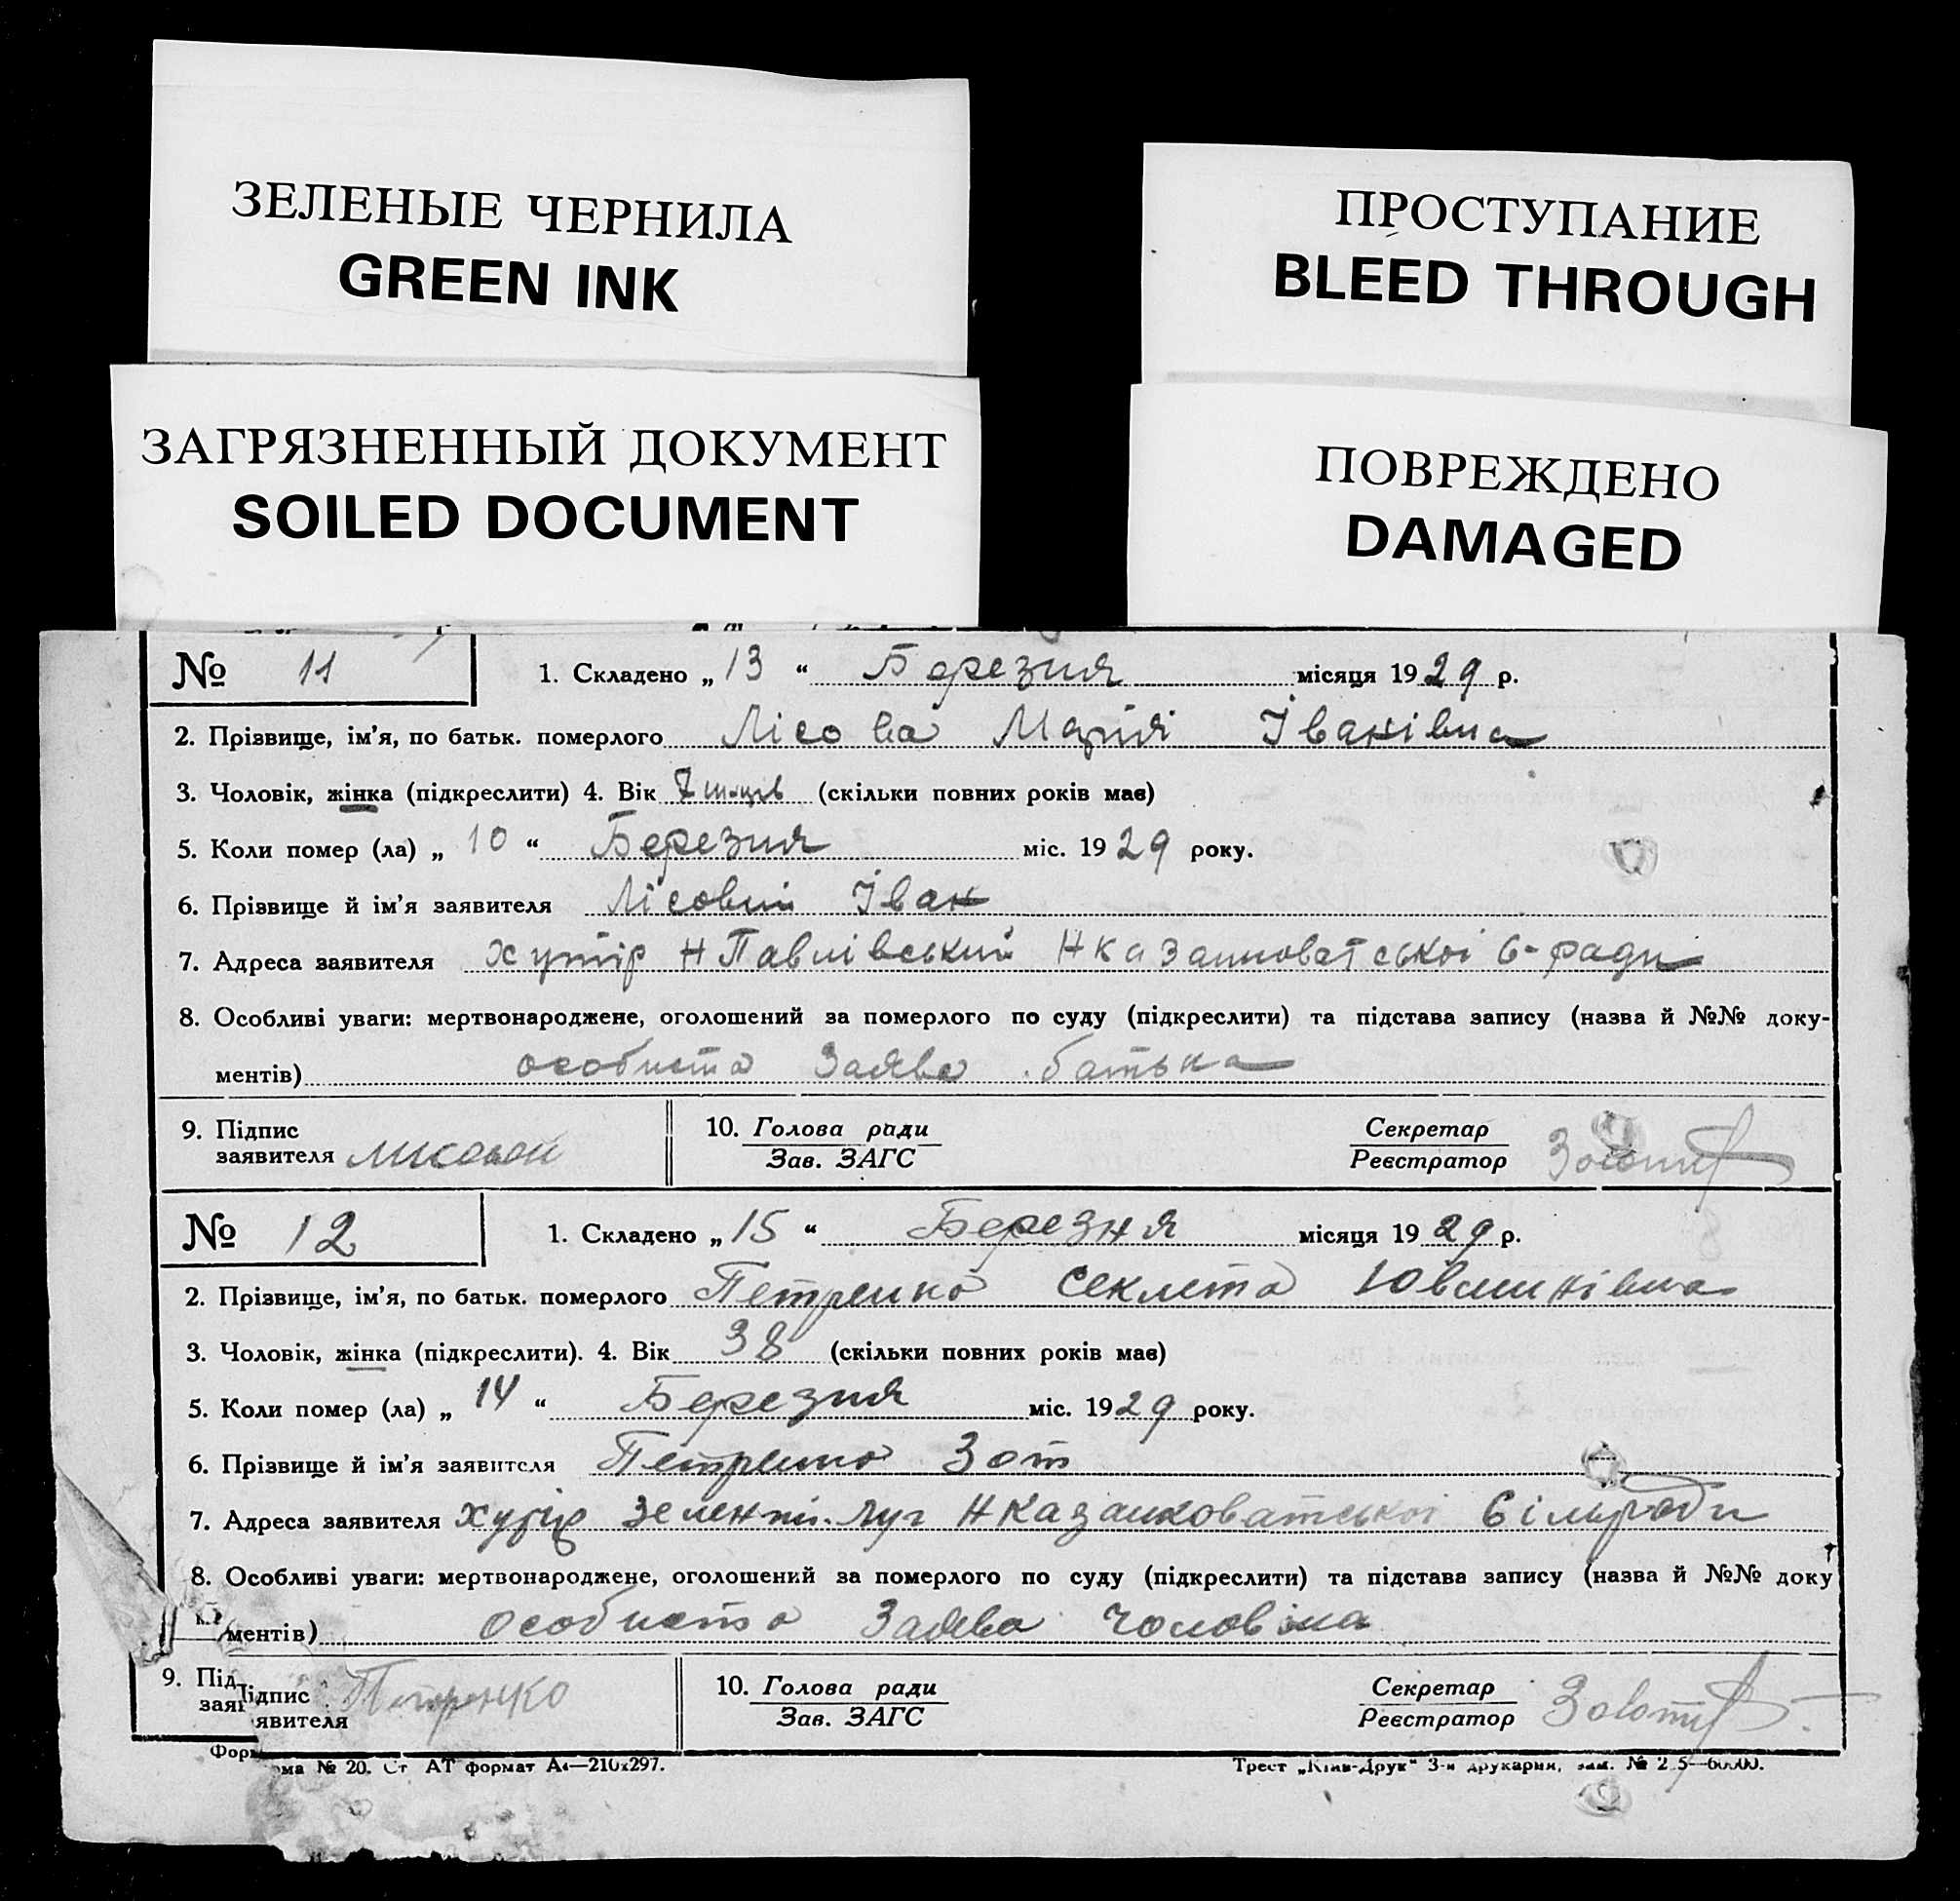 ЗЕЛЕНЫЕ ЧЕРНИЛА
GREEN INK
ПРОСТУПАНИЕ
BLEED THROUGH
ЗАГРЯЗНЕННЫЙ ДОКУМЕНТ
SOILED DOCUMENT
ПОВРЕЖДЕНО
DAMAGED
№ 11 1. Складено „ 13 “ Березня місяця 1929 р.
2. Прізвище, ім'я, по батьк. померлого Лісова Марія Іванівна
3. Чоловік, жінка (підкреслити) 4. Вік 7 (скільки повних років має)
5. Коли помер (ла) „ 10 “ Березня міс. 1929 року.
6. Прізвище й ім'я заявителя Лісовий Іван
7. Адреса заявителя хутір НПавлівський Нказанковатської с-ради
8. Особливі уваги: мертвонароджене, оголошений за померлого по суду (підкреслити) та підстава запису (назва й №№ доку-
ментів) особиста Заява батька
9. Підпис 10. Голова ради Секретар
заявителя Лисовой Зав. ЗАГС Реєстратор
№ 12 1. Складено „ 15 “ Березня місяця 1929 р.
2. Прізвище, ім'я, по батьк. померлого Петренко Секлета
3. Чоловік, жінка (підкреслити). 4. Вік 38 (скільки повних років має)
5. Коли помер (ла) „ 14 “ Березня міс. 1929 року.
6. Прізвище й ім'я заявителя Петренко Зот
7. Адреса заявителя Хутір Зелений луг НКазанковатської Сільради
8. Особливі уваги: мертвонароджене, оголошений за померлого по суду (підкреслити) та підстава запису (назва й №№ доку
ментів) особиста Заява Чоловіка
9. Під
заяв
Підпис Петренко 10. Голова ради Секретар
явителя Зав. ЗАГС Реєстратор
Фор
ма № 20. Ст АТ формат А4—210х297. Трест „Київ-Друк“ 3-я друкарня, зам. №